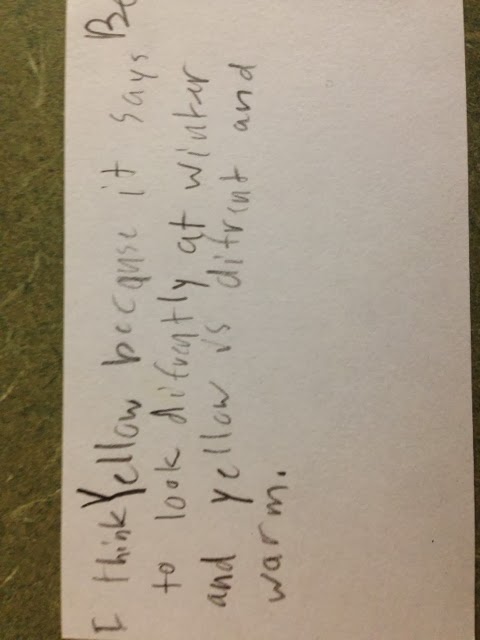 I think Yellow because it says Be
to look difrently at winter
and yellow is difrent and
warm.